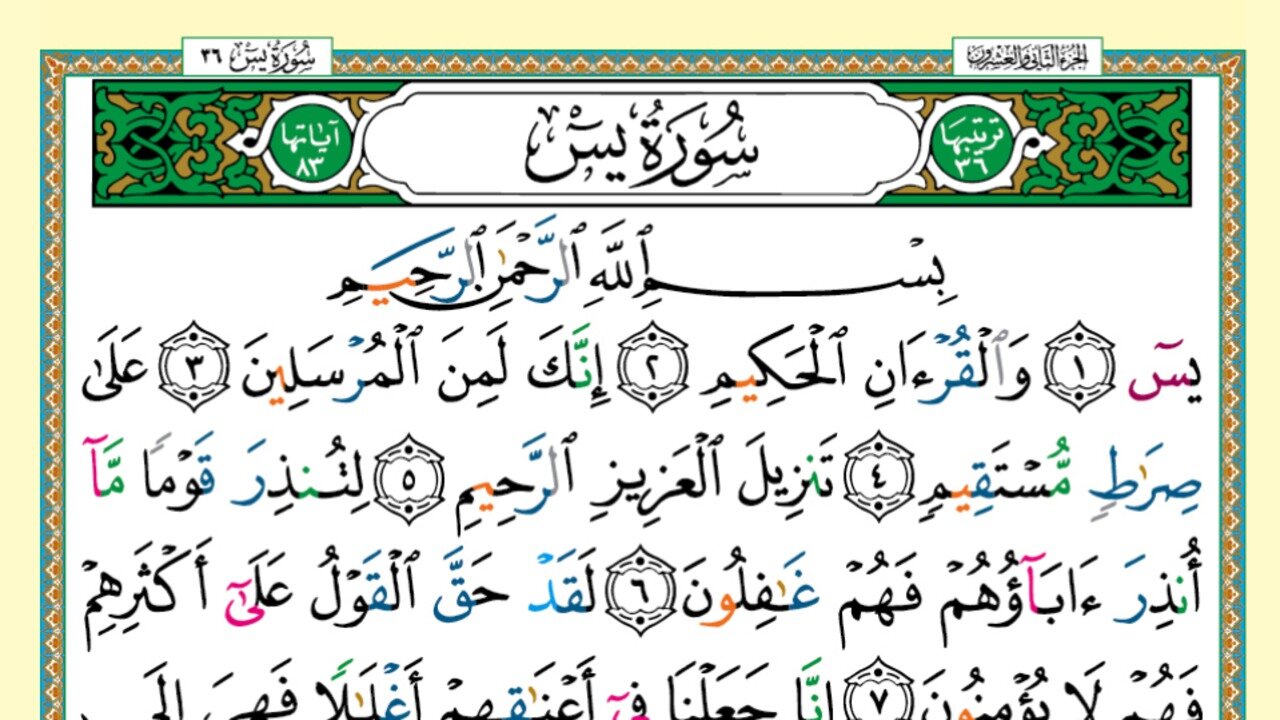 الجزء الثاني والعشرون
سُورَةُ يسٓ ٣٦
ترتيبها ٣٦
سُورَةُ يسٓ
آياتها ٨٣
بِسْمِ ٱللَّهِ ٱلرَّحْمَٰنِ ٱلرَّحِيمِ
يسٓ ١ وَٱلْقُرْءَانِ ٱلْحَكِيمِ ٢ إِنَّكَ لَمِنَ ٱلْمُرْسَلِينَ ٣ عَلَىٰ
صِرَٰطٍ مُّسْتَقِيمٍ ٤ تَنزِيلَ ٱلْعَزِيزِ ٱلرَّحِيمِ ٥ لِتُنذِرَ قَوْمًا مَّآ
أُنذِرَ ءَابَآؤُهُمْ فَهُمْ غَٰفِلُونَ ٦ لَقَدْ حَقَّ ٱلْقَوْلُ عَلَىٰٓ أَكْثَرِهِمْ
فَهُمْ لَا يُؤْمِنُونَ ٧ إِنَّا جَعَلْنَا فِىٓ أَعْنَٰقِهِمْ أَغْلَٰلًا فَهِىَ إِلَى